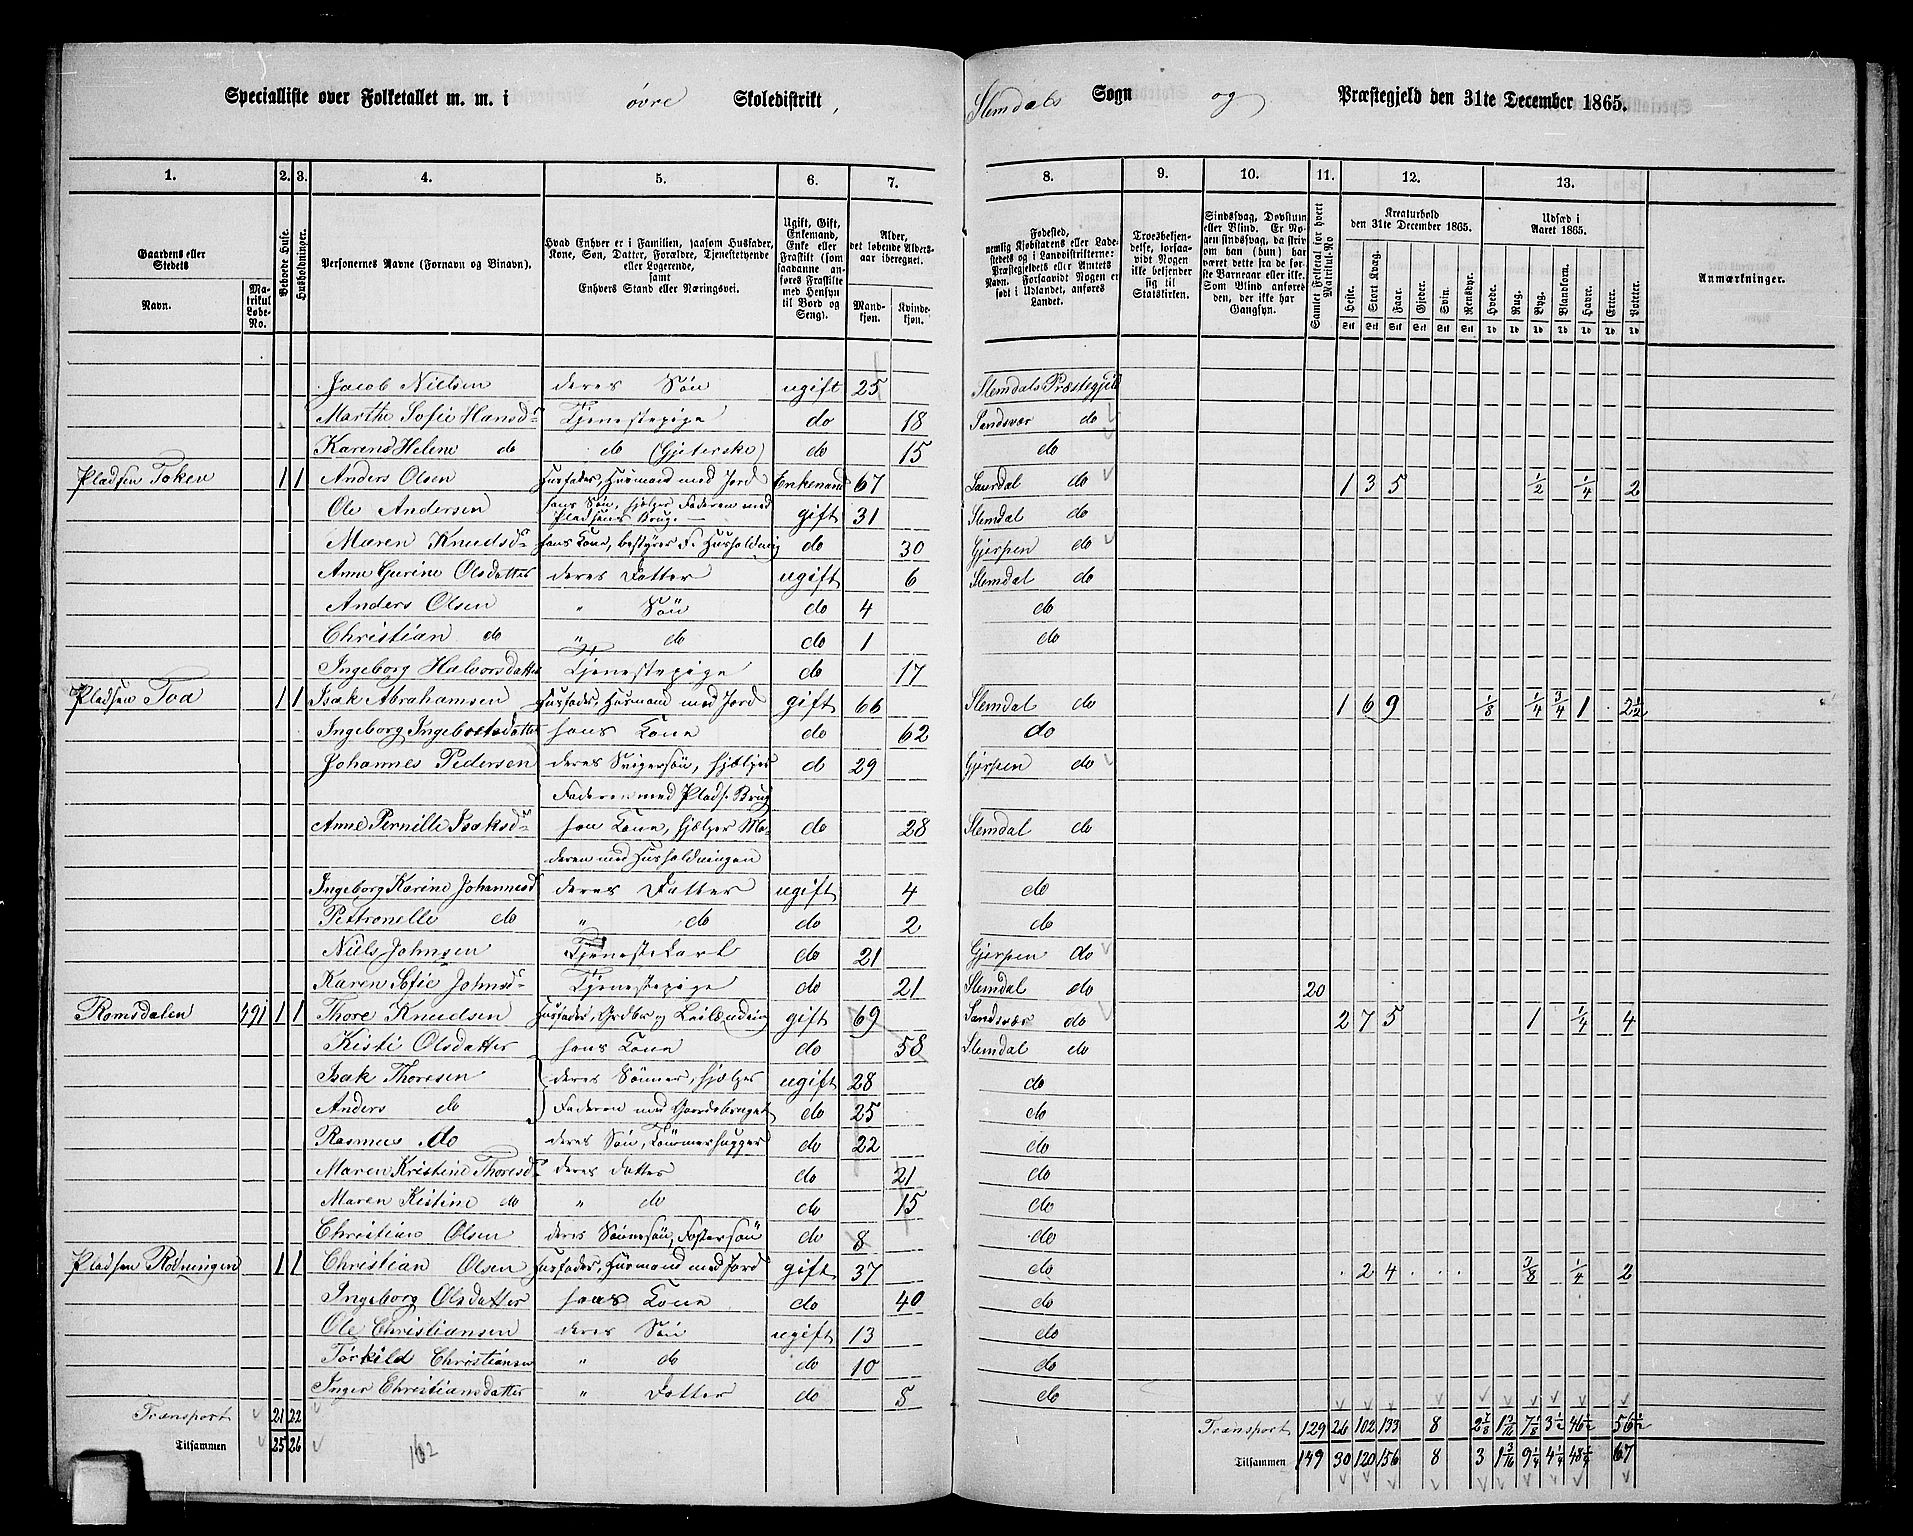 Specialliste over Folketallet m. m. i øvre Skoledistrikt, Slemdals Sogn og Præstegjeld den 31te December 1865.
1. 2. 3. 4. 5. 6. 7. 8. 9. 10. 11. 12. 13.
Gaardens eller Stedets
Navn.
Matrikul Løbe-No.
Beboede Huse.
Husholdninger.
Personernes Navne (Fornavn og Binavn).
Hvad Enhver er i Familien, saasom Husfader, Kone, Søn, Datter, Forældre, Tjenestetyende eller Logerende, samt Enhvers Stand eller Næringsvei.
Ugift, Gift, Enkemand, Enke eller Fraskilt (som saadanne anføres Fraskilte med Hensyn til Bord og Seng).
Alder, det løbende Alders-aar iberegnet.
Mand-kjøn. Kvinde-kjøn.
Fødested, nemlig Kjøbstadens eller Ladestedets og i Landdistrikterne: Præstegjeldets eller Amtets Navn. Forsaavidt Nogen er født i Udlandet, anføres Landet.
Troesbekjendelse, forsaavidt Nogen ikke bekjender sig til Statskirken.
Sindssvag, Døvstum eller Blind. Er Nogen sindssvag, da skriv om han (hun) har været det fra de første Barneaar eller ikke. Som Blind anføres den, der ikke har Gangsyn.
Samlet Folketal for hvert Matrikul-No
Kreaturhold den 31te December 1865.
Heste. Stort Kvæg. Faar. Gjeder. Svin. Rensdyr.
Udsæd i Aaret 1865.
Hvede. Rug. Byg. Blandkorn. Havre. Erter. Poteter.
Anmærkninger.
Jacob Nielsen deres Søn ugift 25 Slemdals Præstegjeld
Marthe Sofie Hansdr Tjenestepige do 18 Sandsvær do
Karen Helene do do (Gjeterske) do 15 do
Pladsen Token 1 1 Anders Olsen Husfader, Husmand med Jord Enkemand 67 Laurdal do 1 3 5 1/2 1/4 2
Ole Andersen hans Søn, hjelper Faderen med Pladsens Brug gift 31 Slemdal do
Maren Knudsdr hans Kone, bestyrer F. Husholdning do 30 Gjerpen do
Anne Gurine Olsdatter deres Datter ugift 6 Slemdal do
Anders Olsen " Søn do 4 do
Christian do " do do 1 do
Ingeborg Halvorsdatter Tjenestepige do 17
Pladsen Toa 1 1 Isak Abrahamsen Husfader, Husmand med Jord gift 66 Slemdal do 1 6 9 1/8 1/4 3/4 1 2 1/2
Ingeborg Ingebretsdatter hans Kone do 62 do
Johannes Pedersen deres Svigersøn, hjælper do 29 Gjerpen do
Faderen med Plads. Brug
Anne Pernille Isaksdr hans Kone, hjelper Mo- do 28 Slemdal do
deren med Husholdningen
Ingeborg Karine Johannesd deres Datter ugift 4 do
Petronelle do " do do 2 do
Niels Johnsen Tjenestekarl do 21 Gjerpen do
Karen Sofie Johnsdr Tjenestepige do 21 Slemdal do 20
Romsdalen 491 1 1 Thore Knudsen Husfader, Grdbr og Leilænding gift 69 Sandsvær do 2 7 5 1 1/4 4
Kisti Olsdatter hans Kone do 58 Slemdal do
Isak Thoresen deres Sønner, hjelper ugift 28 do
Anders do Faderen med Gaardsbruget do 25 do
Rasmus do deres Søn, Tømmerhugger do 22 do
Maren Kristine Thoresdr deres Datter do 21 do
Maren Kistine do " do do 15 do
Christian Olsen deres Sønnesøn, Fostersøn do 8 do
Pladsen Rødningen 1 1 Christian Olsen Husfader, Husmand med Jord gift 37 do 2 4 3/8 1/4 2
Ingeborg Olsdatter hans Kone do 40 do
Ole Christiansen deres Søn ugift 13 do
Torkild Christiansen " do do 10 do
Inger Christiansdatter " Datter do 5 do
Transport 21 22 Transport 129 26 102 133 8 2 7/8 1 3/16 7 1/8 3 1/2 46 1/2 56 1/2
Tilsammen 25 26 Tilsammen 149 30 120 156 8 3 1 3/16 9 1/4 4 1/4 48 1/4 67
162